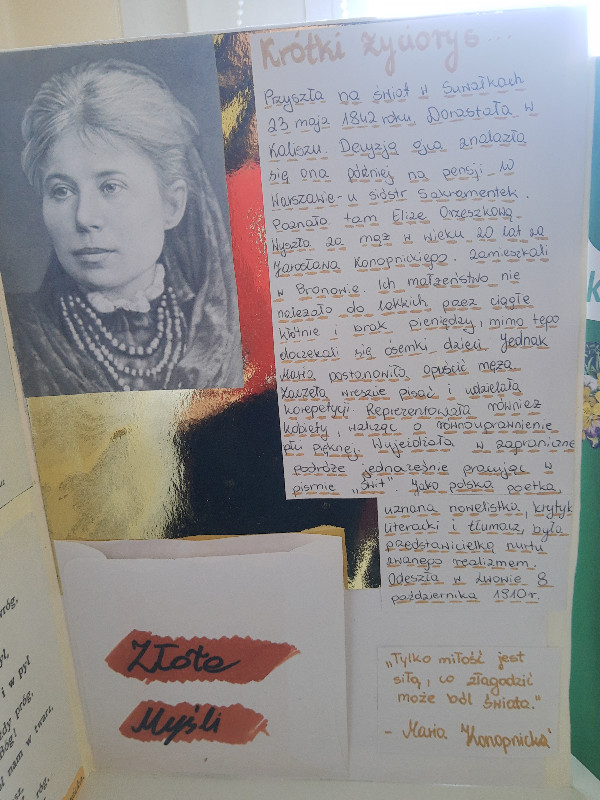 Krótki życiorys...
Przyszła na świat w Suwałkach
23 maja 1842 roku. Dorastała w
Kaliszu. Decyzją ojca znalazła
się ona później na pensji - w
Warszawie - u sióstr Sakramentek.
Poznała tam Elizę Orzeszkową.
Wyszła za mąż w wieku 20 lat za
Jarosława Konopnickiego. Zamieszkali
w Bronowie. Ich małżeństwo nie
należało do lekkich przez ciągłe
kłótnie i brak pieniędzy, mimo tego
doczekali się ósemki dzieci. Jednak
Maria postanowiła opuścić męża.
Zaczęła wreszcie pisać i udzielała
korepetycji. Reprezentowała również
kobiety, walcząc o równouprawnienie
płci pięknej. Wyjeżdżała w zagraniczne
podróże jednocześnie pracując w
piśmie „Świt". Jako polska poetka,
uznana nowelistka, krytyk
literacki i tłumacz, była
przedstawicielką nurtu
zwanego realizmem.
Odeszła w Lwowie 8
października 1910r.
Złote
Myśli
„Tylko miłość jest
siłą, co złagodzić
może ból świata."
- Maria Konopnicka
wróg.
i w pył
próg.
Bóg!
nam w twarz.
róg.